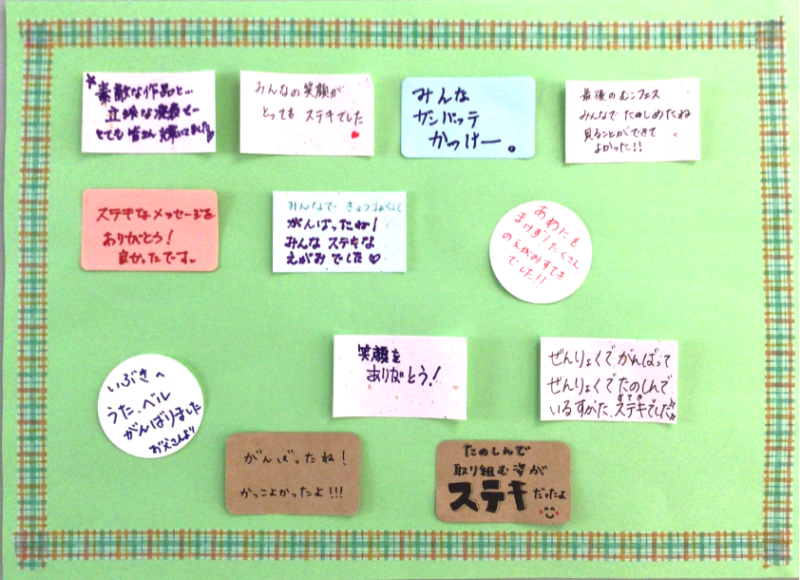 素敵な作品と…
立派な演奏で…
とても皆さん輝いてました
みんなの笑顔が
とっても ステキでした
みんな
ガンバッテ
かっけー。
最後のむこフェス
みんなで たのしめたね
見ることができて
よかった!!
ステキなメッセージを
ありがとう!
良かったです。
みんなで きょうりょくして
がんばったね!
みんな ステキな
えがおでした♡
あめにも
まけず!たくさん
のえがおすてき
でした!!
いぶきへ
うた、ベル
がんばりました
お父さんより
笑顔を
ありがとう!
ぜんりょくで がんばって
ぜんりょくで たのしんで
いるすがた、ステキでした
すてき
がんばったね!
かっこよかったよ!!!
たのしんで
取り組む姿が
ステキだったよ